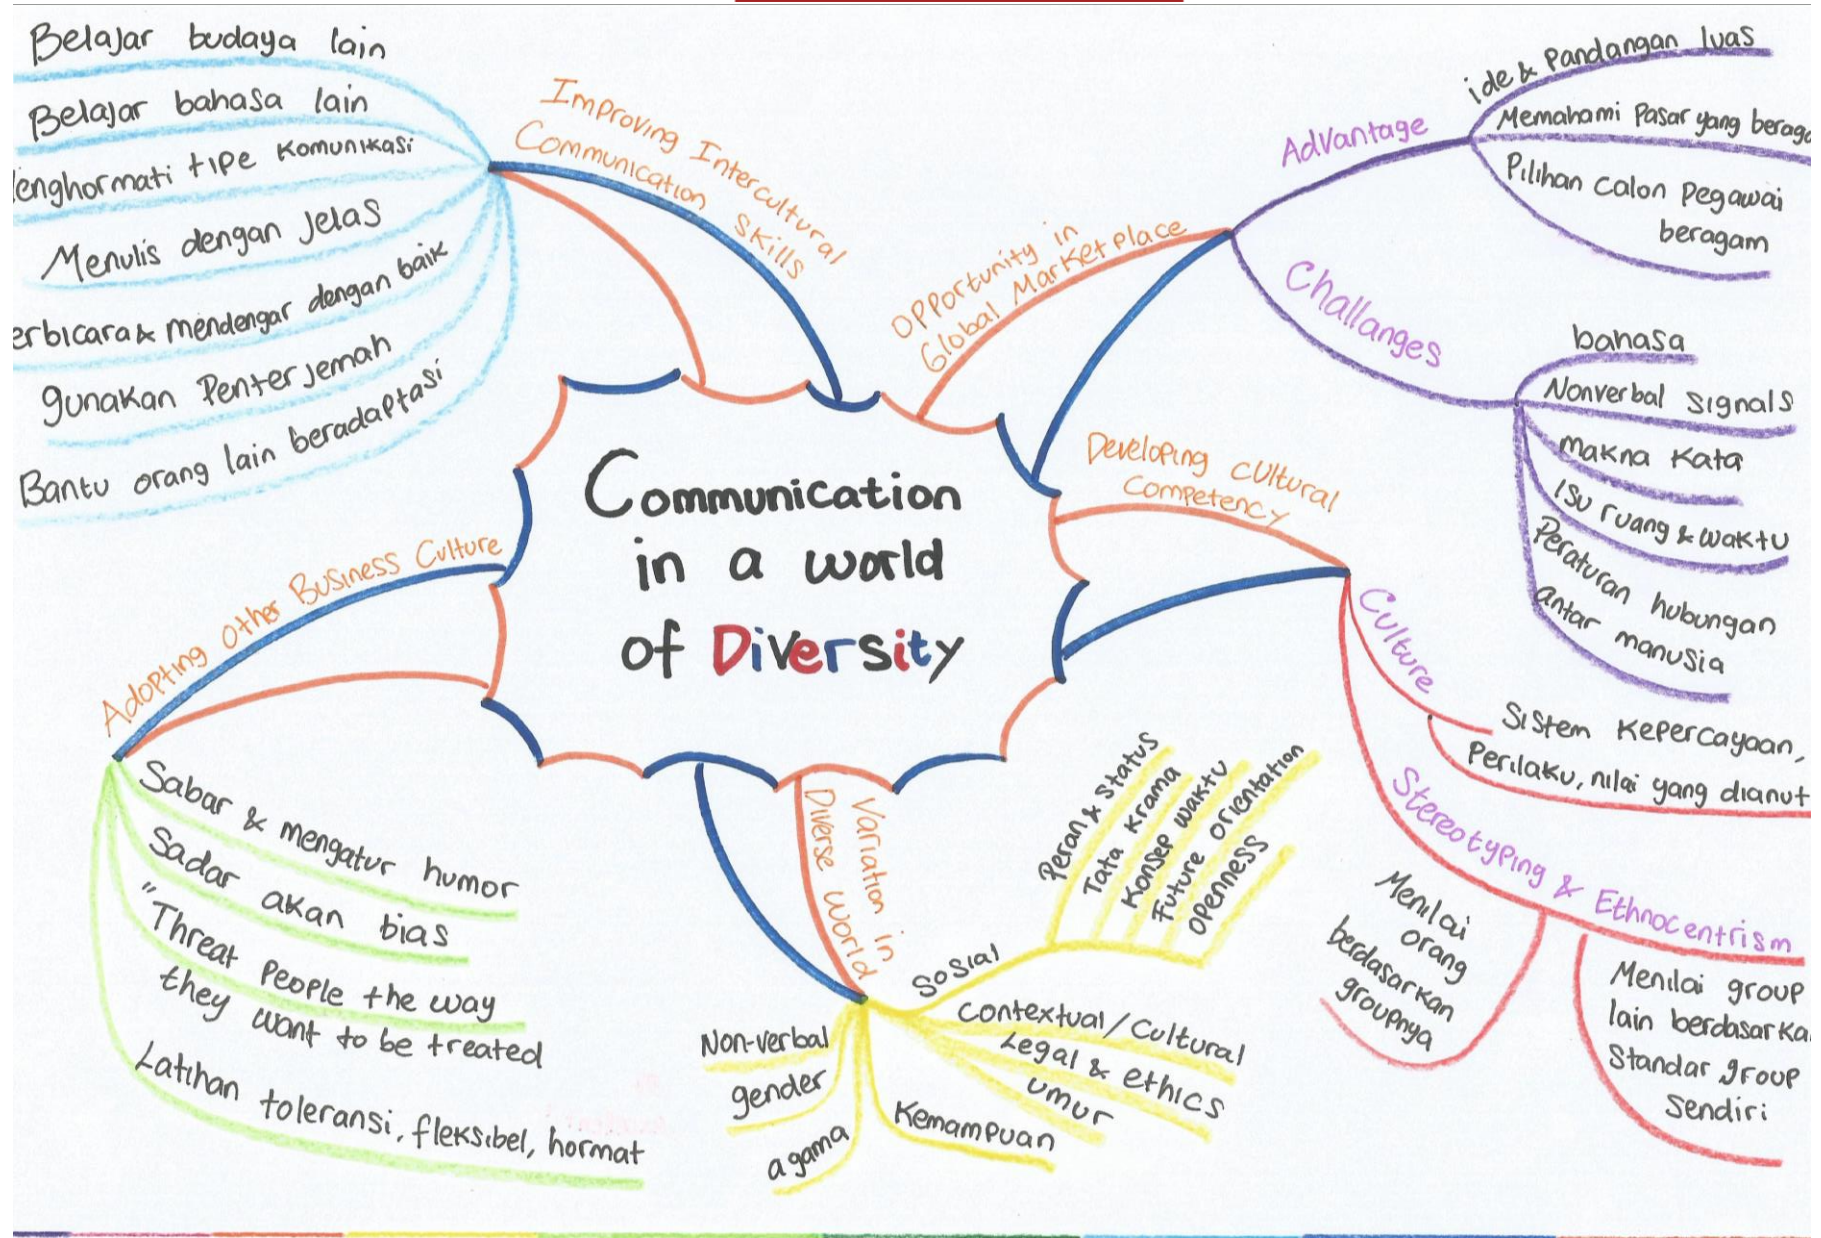 Communication
in a world
of Diversity
Improving Intercultural
Communication Skills
Belajar budaya lain
Belajar bahasa lain
enghormati tipe komunikasi
Menulis dengan jelas
erbicara & mendengar dengan baik
gunakan Penterjemah
Bantu orang lain beradaptasi
Opportunity in
Global Marketplace
Advantage
ide & Pandangan luas
Memahami Pasar yang beraga
Pilihan calon Pegawai
beragam
Challanges
bahasa
Nonverbal signals
Makna Kata
Isu ruang & waktu
Peraturan hubungan
antar manusia
Developing cultural
Competency
Culture
Sistem Kepercayaan,
Perilaku, nilai yang dianut
Stereotyping & Ethnocentrism
Menilai
orang
berdasarkan
groupnya
Menilai group
lain berdasarka
Standar group
Sendiri
Variation in
Diverse World
Sosial
Peran & Status
Tata Krama
Konsep waktu
Future orientation
Openness
Contextual/Cultural
Legal & ethics
umur
Kemampuan
agama
gender
Non-verbal
Adopting Other Business Culture
Sabar & mengatur humor
Sadar akan bias
"Threat People the way
they want to be treated
Latihan toleransi, fleksibel, hormat